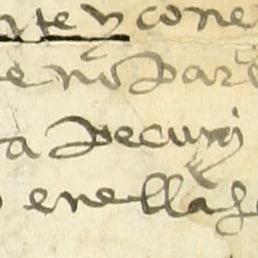 rte y cone
e nro par
a pecuni
en ella se